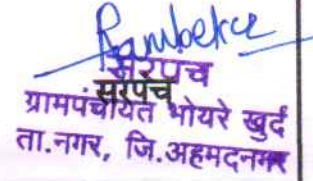 सरपंच
सरपंच
ग्रामपंचायत भोयरे खुर्द
ता.नगर, जि.अहमदनगर